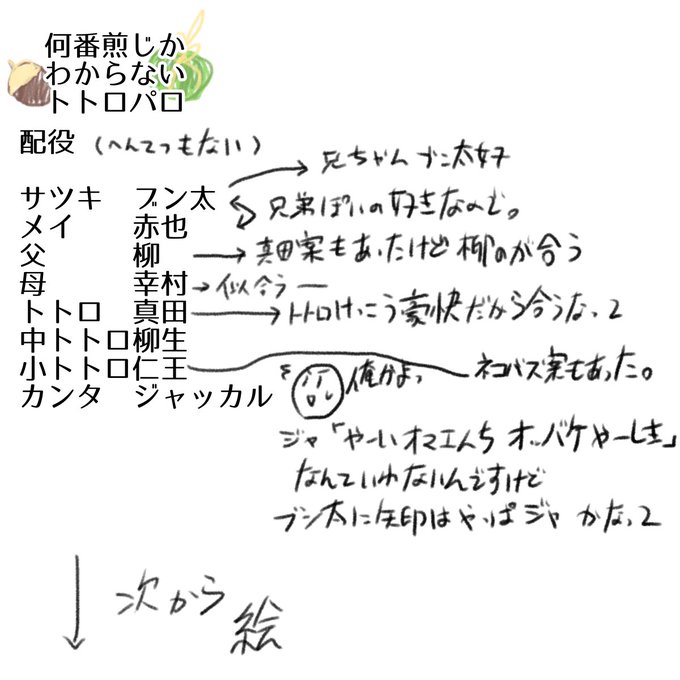 何番煎じか
わからない
トトロパロ
配役 (へんてつもない)
サツキ ブン太
兄ちゃんブン太好
メイ 赤也
兄弟ぽいの好きなので。
父 柳
真田案もあったけど柳のが合う
母 幸村
似合うー
トトロ 真田
トトロけっこう豪快だから合うなって
中トトロ柳生
小トトロ仁王
ネコバス案もあった。
カンタ ジャッカル
俺かよっ
ジャ「やーいオマエんち オバケやーしき」
なんていわないんですけど
ブン太に矢印はやっぱジャ かなって
次から 絵